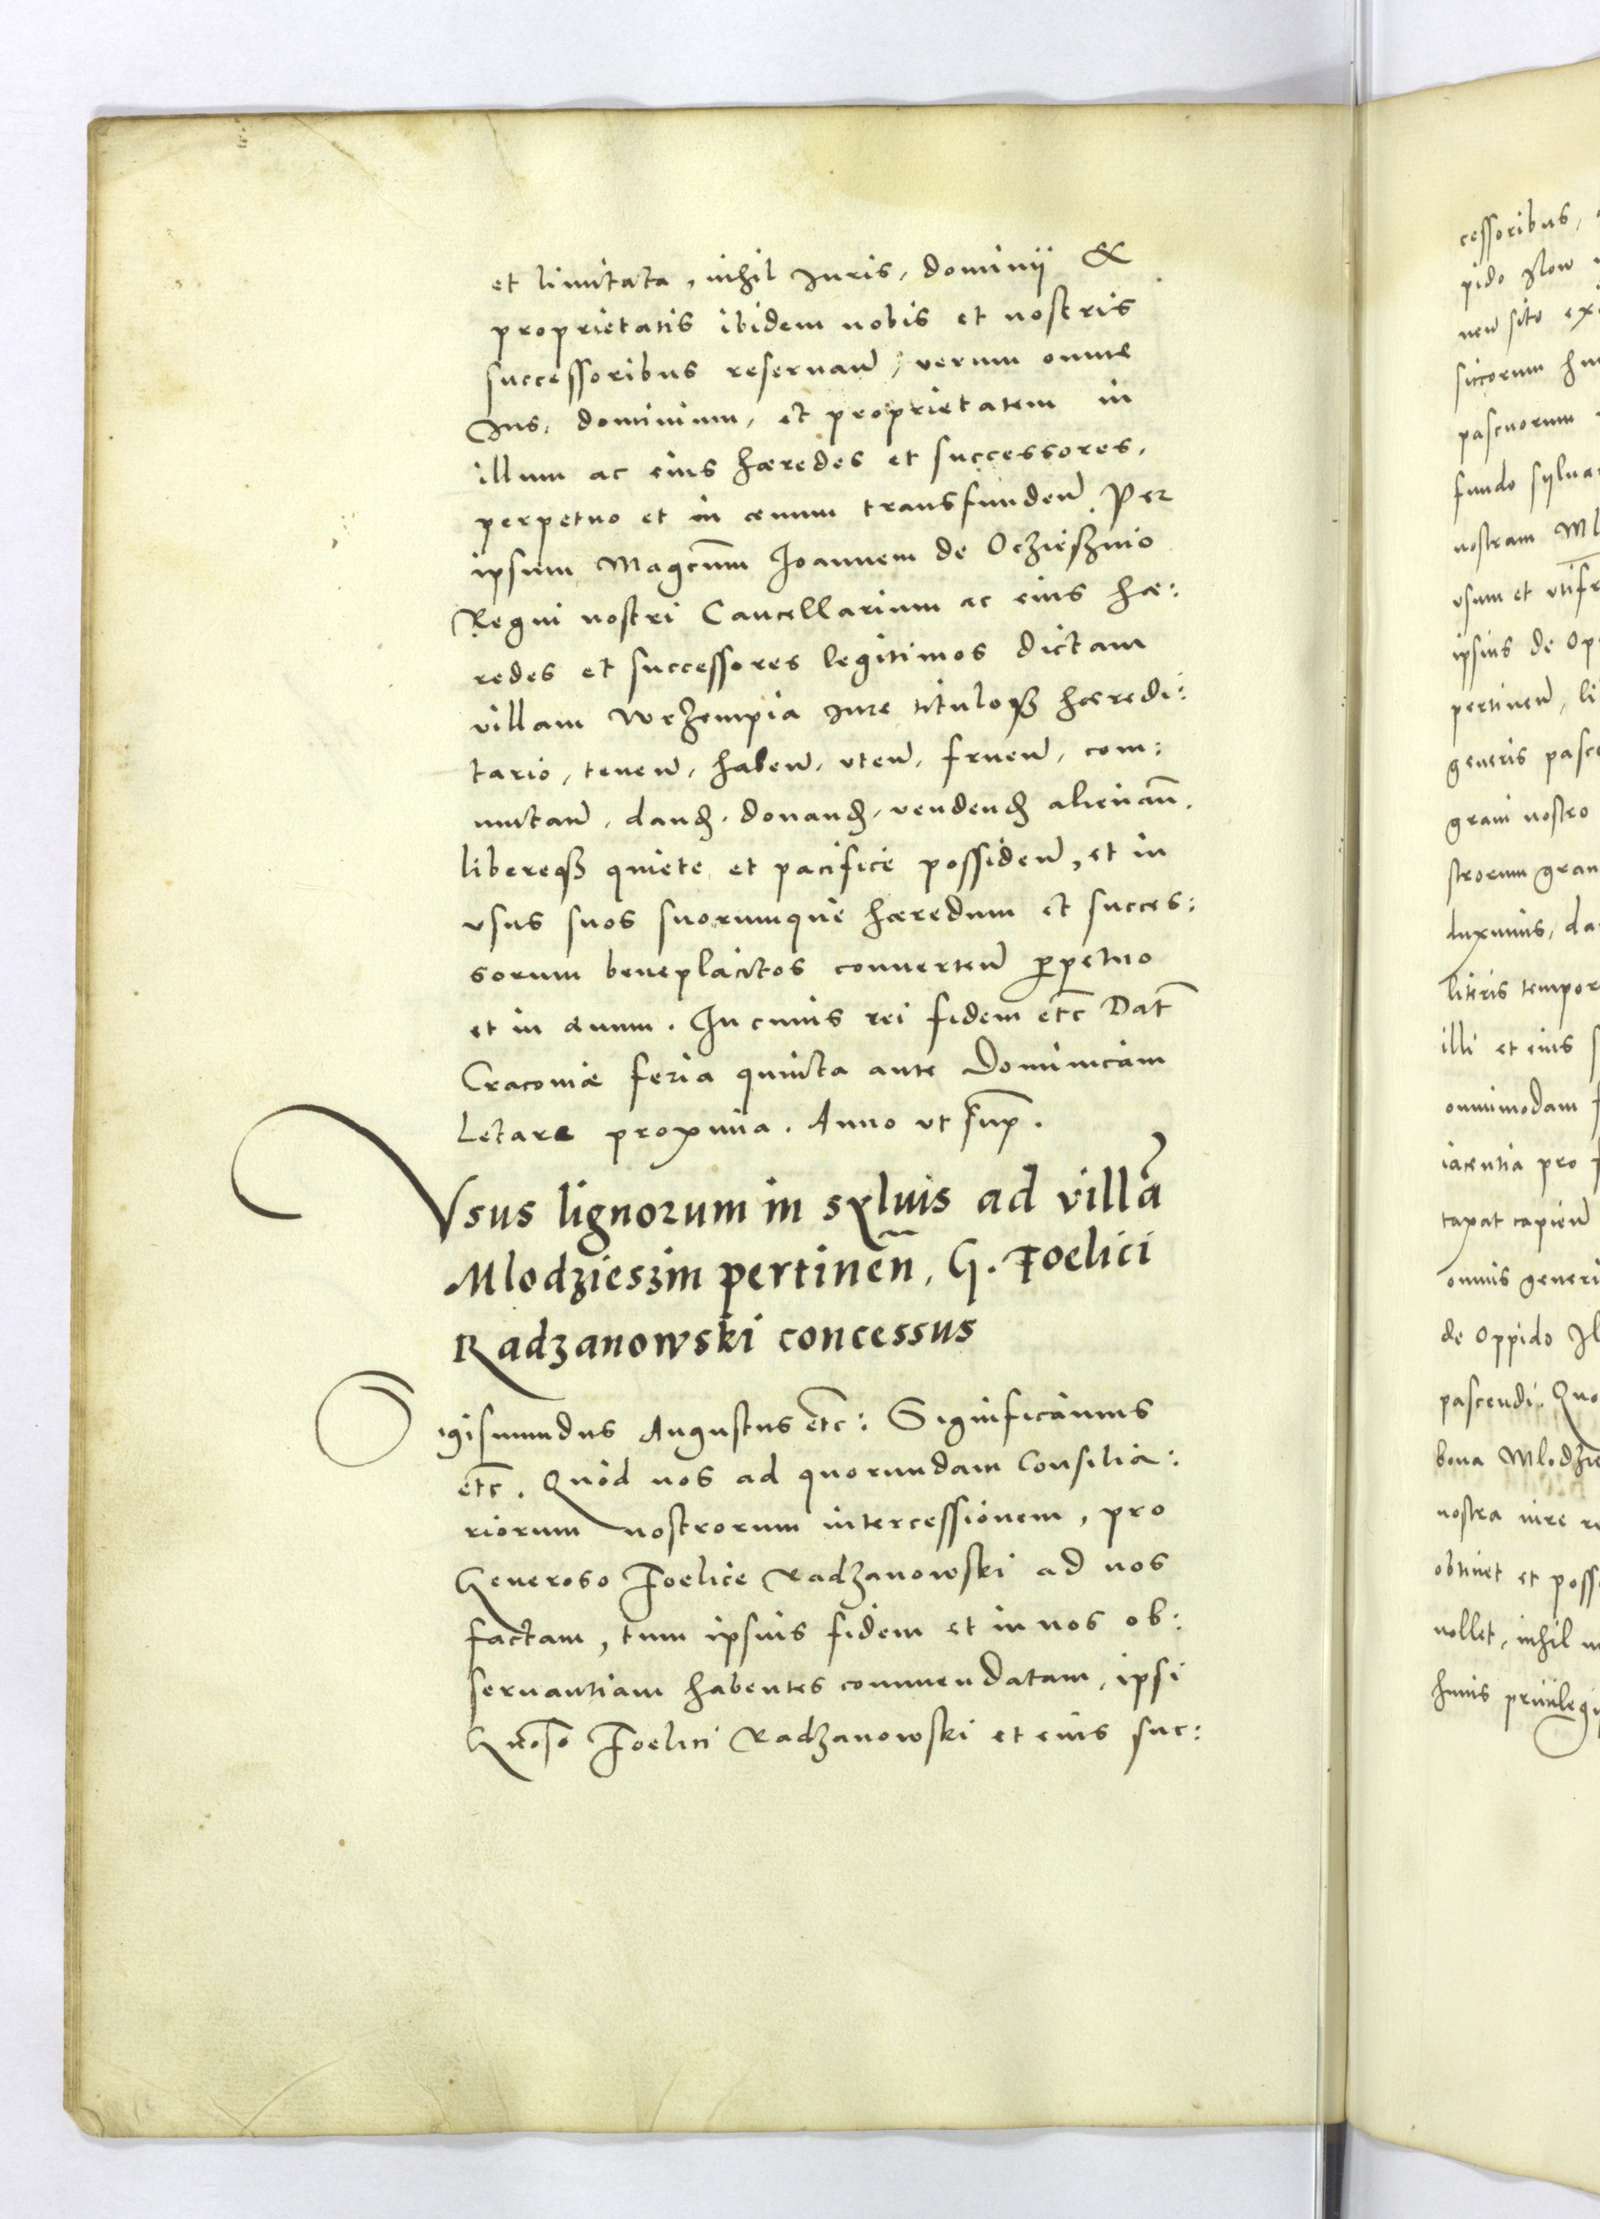 et limitata, nihil Juris, dominij &
proprietatis ibidem nobis et nostris
successoribus reseruan̄, verum omne
Jus, dominium, et proprietatem in
illum ac eius hæredes et successores,
perpetuo et in æuum transfunden̄. Per
ipsum Magcum̄ Joannem de Oczieszino
Regni nostri Cancellarium ac eius hæ:
redes et successores legitimos dictam
villam Wrzempia Jure tituloqȝ hæredi:
tario, tenen̄, haben̄, vten̄, fruen̄, com:
mutan̄, dand̄, donand̄, vendend̄ alienan̄,
libereqȝ quiete et pacifice possiden̄, et in
vsus suos suorumque hæredum et succes:
sorum beneplacitos conuerten̄ ꝑpetuo
et in æuum. In cuius rei fidem etc̄ Dat̄
Cracouiæ feria quinta ante Dominicam
Letare proxima. Anno vt sup̄.
Vsus lignorum in syluis ad villā
Mlodzieszin pertinen̄, G. Foelici
Radzanowski concessus
Sigismundus Augustus etc̄: Significamus
etc̄. Quod nos ad quorundam Consilia:
riorum nostrorum intercessionem, pro
Generoso Foelice Radzanowski ad nos
factam, tum ipsius fidem et in nos ob:
seruantiam habentes commendatam, ipsi
Gn̄oso Foelici Radzanowski et eius suc:
cessoribus,
pido Ilow
nen̄ sito
siccorum
pascuorum
fundo sylua
nostram Ml
vsum et
ipsius de Op
pertinen̄, li
generis pasc
grani nostro
strorum gran
duximus, da
literis tempor
illi et eius
omnimodam
iacentia pro
taxat capien̄
omnis generi
de Oppido Il
pascendi. Quo
bona Mlodzie
nostra iure re
obtinet et poss
nollet, nihil
huius priuilegi